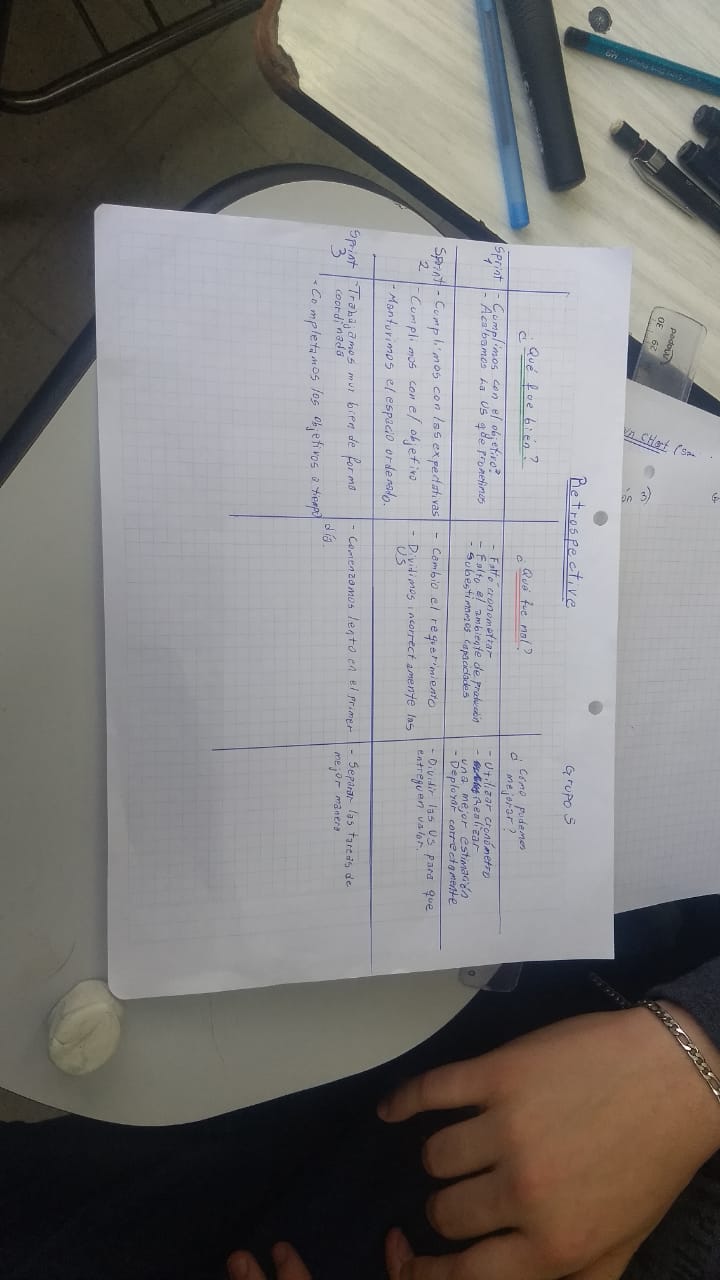 Retrospective
Grupo 5
¿Qué fue bien?
¿Qué fue mal?
¿Cómo podemos
mejorar?
Sprint
1
- Cumplimos con el objetivo?
- Acabamos la US que prometimos
- Faltó cronometrar
- Falto el ambiente de producción
- Subestimamos capacidades
- Utilizar cronómetro
- Realizar
una mejor estimación
- Deployar correctamente
Sprint
2
- Cumplimos con las expectativas
- Cumplimos con el objetivo
- Mantuvimos el espacio ordenado.
- Cambio el requerimiento
- Dividimos incorrectamente las
US
- Dividir las US para que
entreguen valor.
Sprint
3
- Trabajamos muy bien de forma
coordinada
- Completamos los objetivos a tiempo
- Comenzamos lento en el primer
día.
- Separar las tareas de
mejor manera